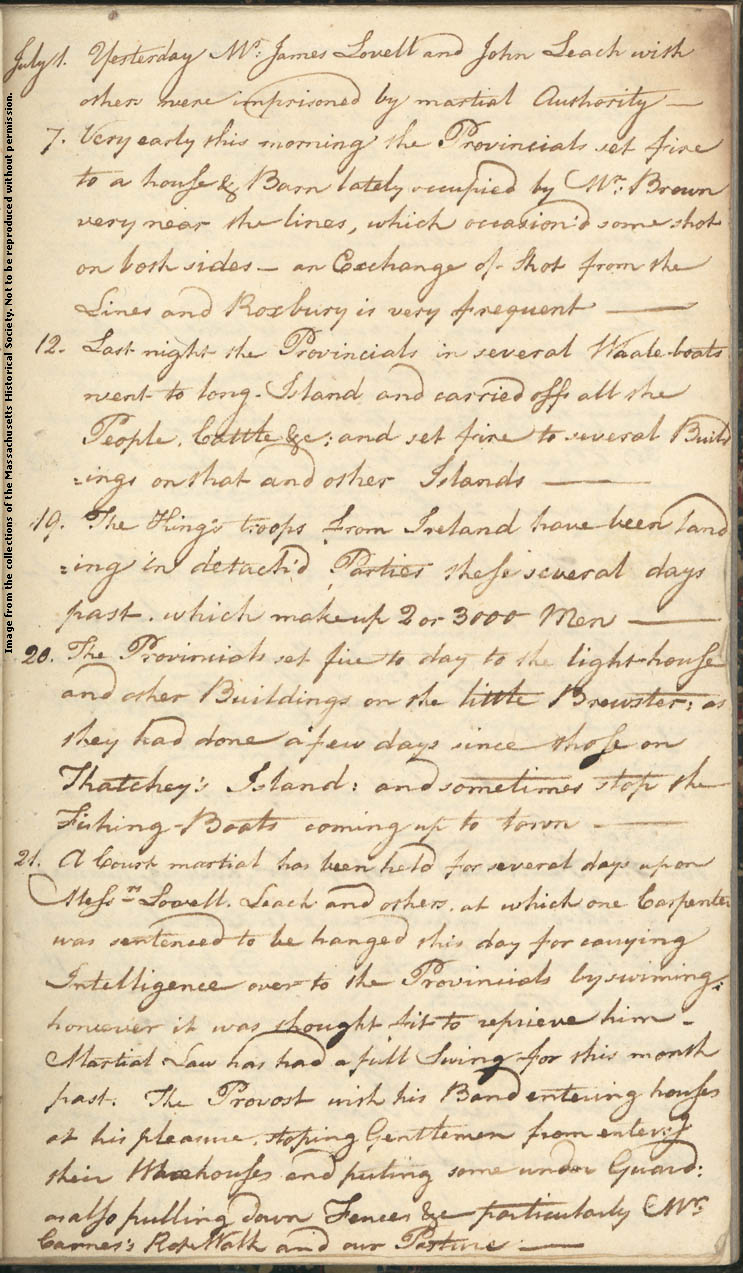 Image from the collections of the Massachusetts Historical Society. Not to be reproduced without permission.
July 1. Yesterday Mr. James Lovell and John Leach with
others were imprisoned by martial Authority —
7. Very early this morning the Provincials set fire
to a house & Barn lately occupied by Mr. Brown
very near the lines, which occasion'd some shot
on both sides — an Exchange of Shot from the
Lines and Roxbury is very frequent —
12. Last night the Provincials in several Whale-boats
went to long-Island and carried off all the
People, Cattle &c: and set fire to several Build
=ings on that and other Islands —
19. The King's troops from Ireland have been land
=ing in detach'd Parties these several days
past. which make up 2 or 3000 Men —
20. The Provincials set fire to day to the light-house
and other Buildings on the little Brewster: as
they had done a few days since those on
Thatchey's Island: and sometimes stop the
Fishing-Boats coming up to town —
21. A Court martial has been held for several days upon
Messrs Lovell, Leach and others. at which one Carpenter
was sentenced to be hanged this day for carrying
Intelligence over to the Provincials by swiming:
however it was thought fit to reprieve him —
Martial Law has had a full Swing for this month
past. The Provost with his Band entering houses
at his pleasure, stoping Gentlemen from enterg
their Warehouses and puting some under Guard:
as also pulling down Fences &c particularly Mr.
Carnes's Rope Walk and our Pasture —